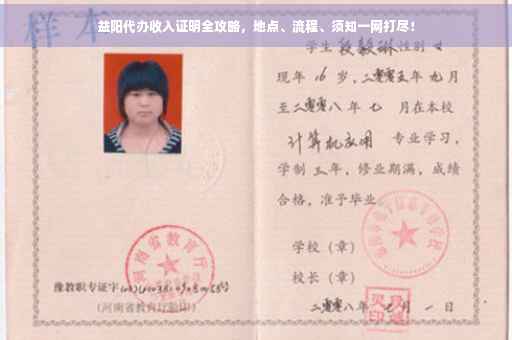 益阳代办收入证明全攻略，地点、流程、须知一网打尽！
样本
学生段毅琳性别女
现年16岁，二零零五年九月
至二零零八年七月在本校
计算机应用 专业学习，
学制三年，修业期满，成绩
合格，准予毕业。
学校（章）
校长（章）
二零零八年 月一日
河南省教育厅
豫教职专证字
（河南省教育厅验印）